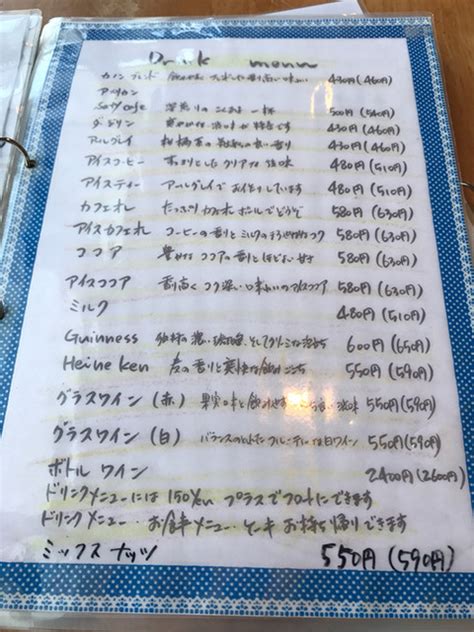 Drink menu
430円(460円)
500円(540円)
ダージリン 430円(460円)
アールグレイ 柑橘系の 香り 430円(460円)
アイスコーヒー すっきりとしたクリアな後味 480円(510円)
アイスティー アールグレイでお作りしています 480円(510円)
カフェオレ たっぷりカフェオレボールでどうぞ 580円(630円)
アイスカフェオレ コーヒーの香りとミルクのまろやかなコク 580円(630円)
ココア 豊かなココアの香りとほどよい甘さ 580円(630円)
アイスココア 香高くコク深い味わいのアイスココア 580円(630円)
ミルク 480円(510円)
Guinness 600円(650円)
Heineken 麦の香りと爽快な飲みごこち 550円(590円)
グラスワイン(赤) 550円(590円)
グラスワイン(白) バランスのとれたフルーティーな白ワイン 550円(590円)
ボトルワイン 2400円(2600円)
ドリンクメニューには150yen プラスでフロートにできます
ドリンクメニュー・お食事メニュー・ケーキ お持ち帰りできます
ミックスナッツ 550円(590円)